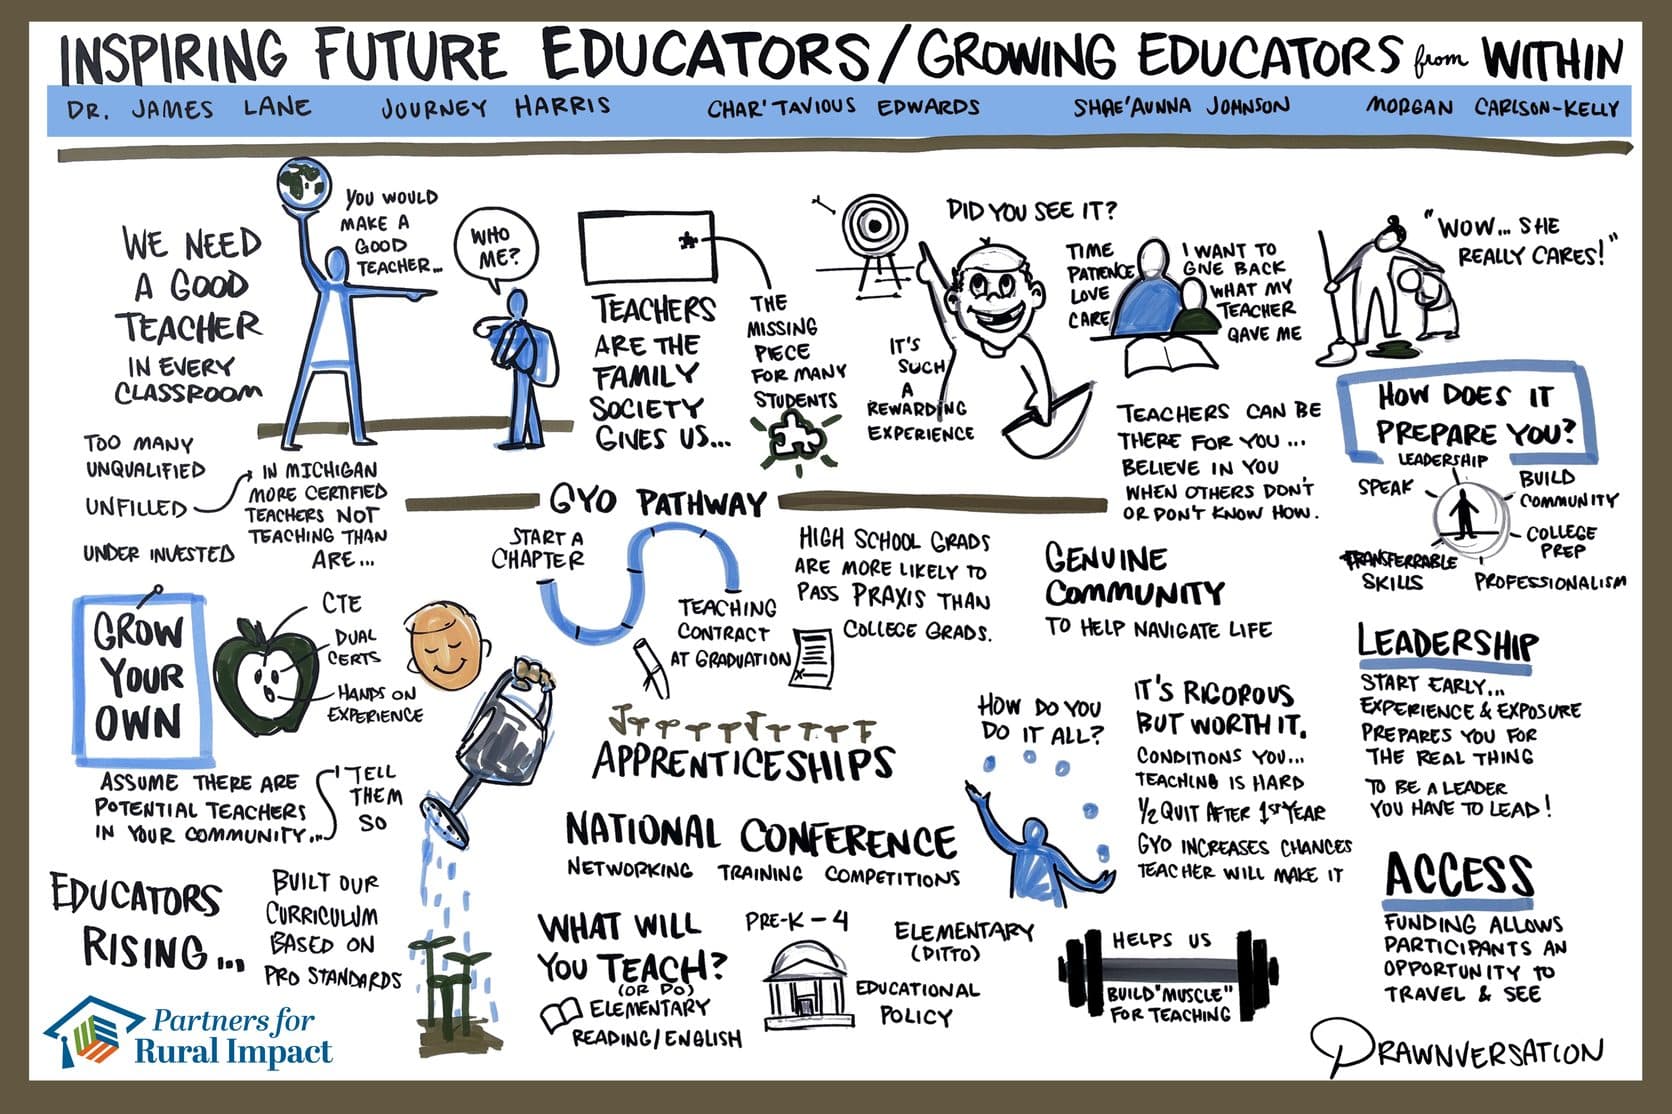 INSPIRING FUTURE EDUCATORS/GROWING EDUCATORS from WITHIN
DR. JAMES LANE JOURNEY HARRIS CHAR'TAVIOUS EDWARDS SHAE'AUNNA JOHNSON MORGAN CARLSON-KELLY
WE NEED
A GOOD
TEACHER
IN EVERY
CLASSROOM
YOU WOULD
MAKE A
GOOD
TEACHER...
WHO
ME?
TOO MANY
UNQUALIFIED
UNFILLED
UNDER INVESTED
IN MICHIGAN
MORE CERTIFIED
TEACHERS NOT
TEACHING THAN
ARE...
TEACHERS
ARE THE
FAMILY
SOCIETY
GIVES US...
THE
MISSING
PIECE
FOR MANY
STUDENTS
DID YOU SEE IT?
IT'S
SUCH
A
REWARDING
EXPERIENCE
TIME
PATIENCE
LOVE
CARE
I WANT TO
GIVE BACK
WHAT MY
TEACHER
GAVE ME
TEACHERS CAN BE
THERE FOR YOU...
BELIEVE IN YOU
WHEN OTHERS DON'T
OR DON'T KNOW HOW.
"WOW... SHE
REALLY CARES!"
HOW DOES IT
PREPARE YOU?
LEADERSHIP
SPEAK
BUILD
COMMUNITY
COLLEGE
PREP
TRANSFERRABLE
SKILLS
PROFESSIONALISM
GYO PATHWAY
START A
CHAPTER
TEACHING
CONTRACT
AT GRADUATION
HIGH SCHOOL GRADS
ARE MORE LIKELY TO
PASS PRAXIS THAN
COLLEGE GRADS.
GENUINE
COMMUNITY
TO HELP NAVIGATE LIFE
GROW
YOUR
OWN
CTE
DUAL
CERTS
HANDS ON
EXPERIENCE
ASSUME THERE ARE
POTENTIAL TEACHERS
IN YOUR COMMUNITY...
TELL
THEM
SO
APPRENTICESHIPS
NATIONAL CONFERENCE
NETWORKING TRAINING COMPETITIONS
HOW DO YOU
DO IT ALL?
IT'S RIGOROUS
BUT WORTH IT.
CONDITIONS YOU...
TEACHING IS HARD
1/2 QUIT AFTER 1ST YEAR
GYO INCREASES CHANCES
TEACHER WILL MAKE IT
LEADERSHIP
START EARLY...
EXPERIENCE & EXPOSURE
PREPARES YOU FOR
THE REAL THING
TO BE A LEADER
YOU HAVE TO LEAD!
EDUCATORS
RISING...
BUILT OUR
CURRICULUM
BASED ON
PRO STANDARDS
WHAT WILL
YOU TEACH?
(OR DO)
ELEMENTARY
READING/ENGLISH
PRE-K-4
ELEMENTARY
(DITTO)
EDUCATIONAL
POLICY
HELPS US
BUILD "MUSCLE"
FOR TEACHING
ACCESS
FUNDING ALLOWS
PARTICIPANTS AN
OPPORTUNITY TO
TRAVEL & SEE
Partners for
Rural Impact
DRAWNVERSATION